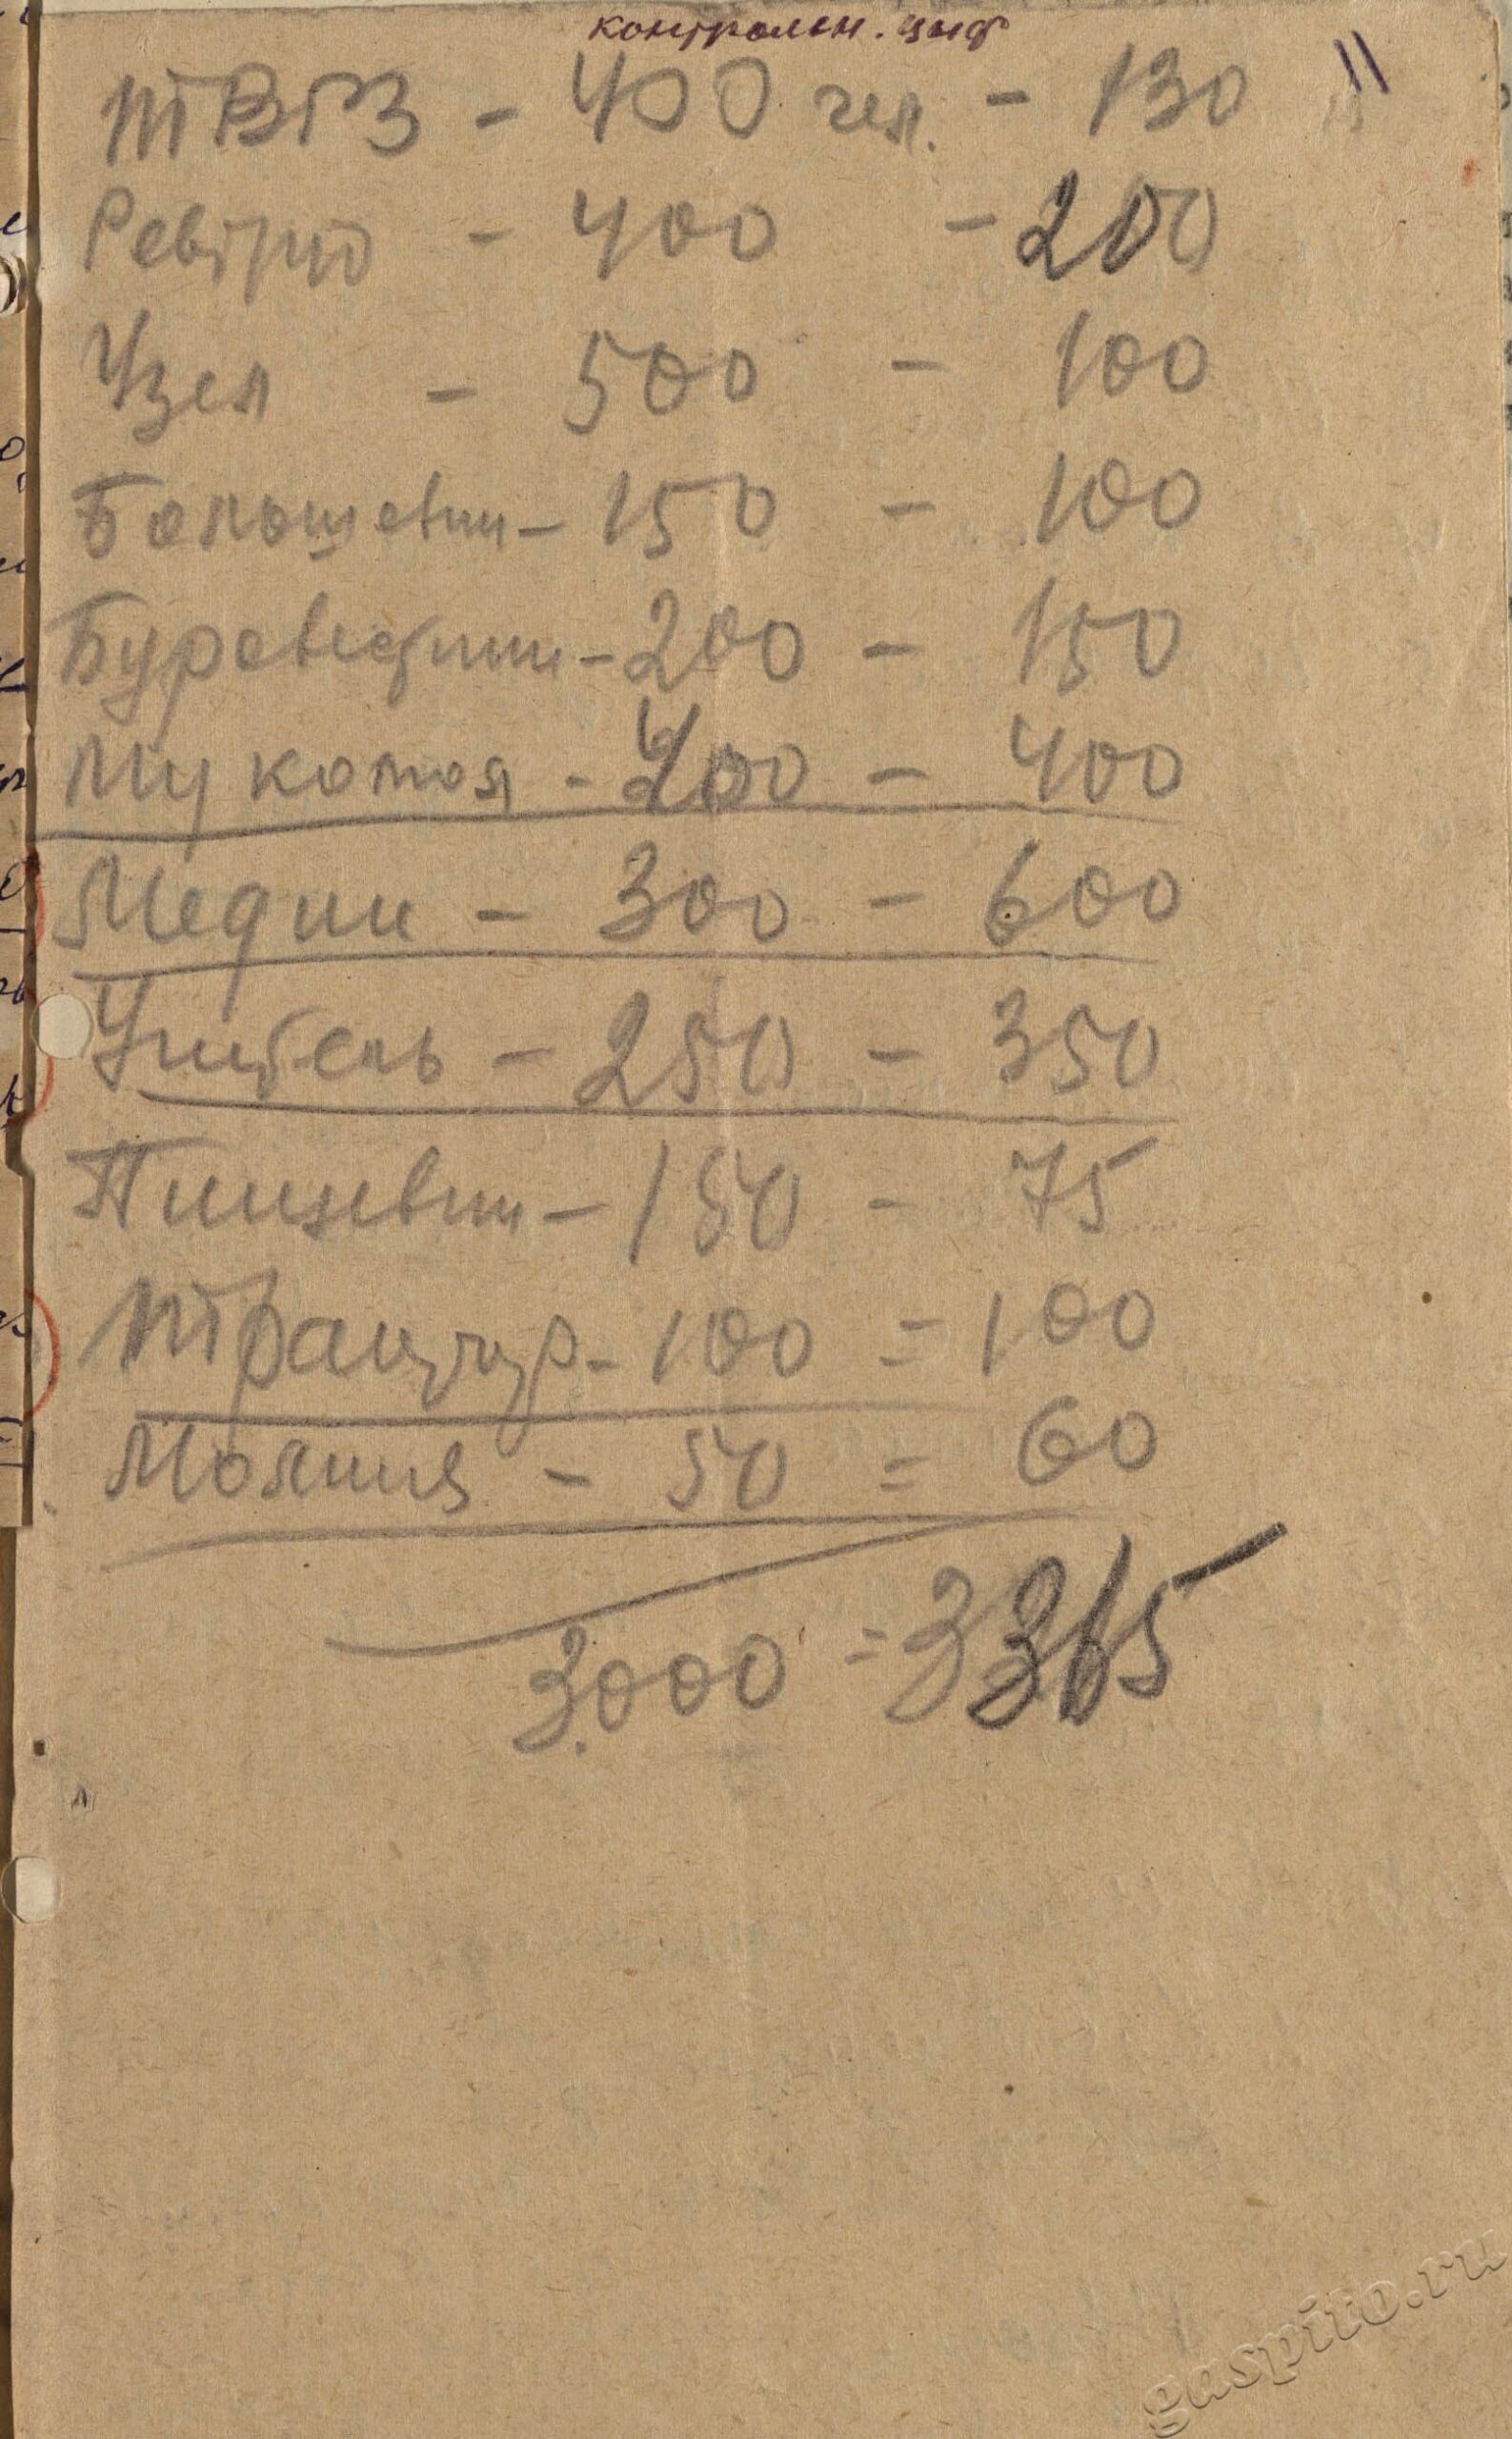 контрольн. циф
11
ТВРЗ - 400 чел. - 130
Ревтруд - 400 - 200
Узел - 500 - 100
Большевик - 150 - 100
Буревестник - 200 - 150
Мукомол - - 400
Медик - 300 - 600
Учитель - 250 - 350
Пищевик - 150 - 75
- 100 = 100
Молния - 50 = 60
3000 = 3365
gaspito.ru